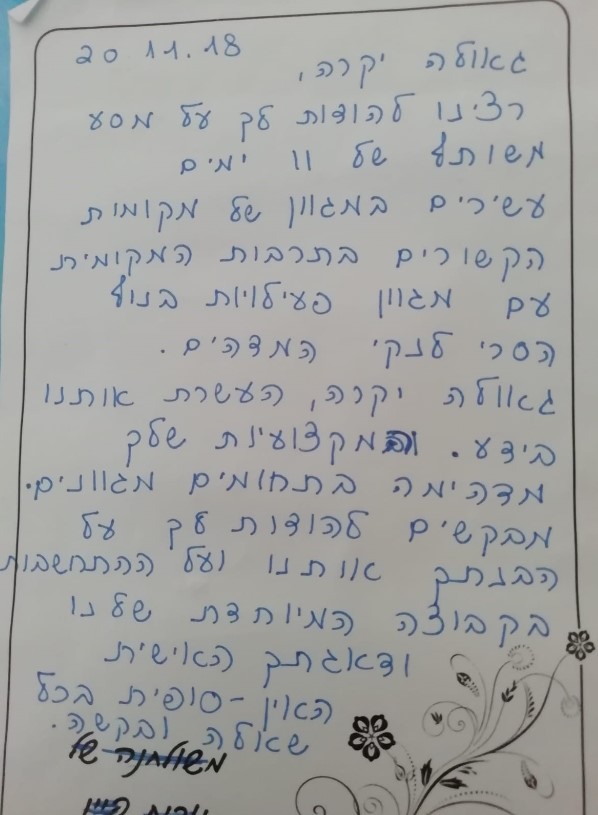 20.11.18
גאולה יקרה,
רצינו להודות לך על מסע
משותף של 11 ימים
עשירים במגוון של מקומות
הקשורים בתרבות המקומית
עם מגוון פעילויות בנוף
הסרי לנקי המדהים.
גאולה יקרה, העשרת אותנו
בידע. המקצועיות שלך
מדהימה בתחומים מגוונים.
מבקשים להודות לך על
הבנתך אותנו ועל ההתחשבות
בקבוצה המיוחדת שלנו
ודאגתך האישית
האין-סופית בכל
שאלה ובקשה.
של